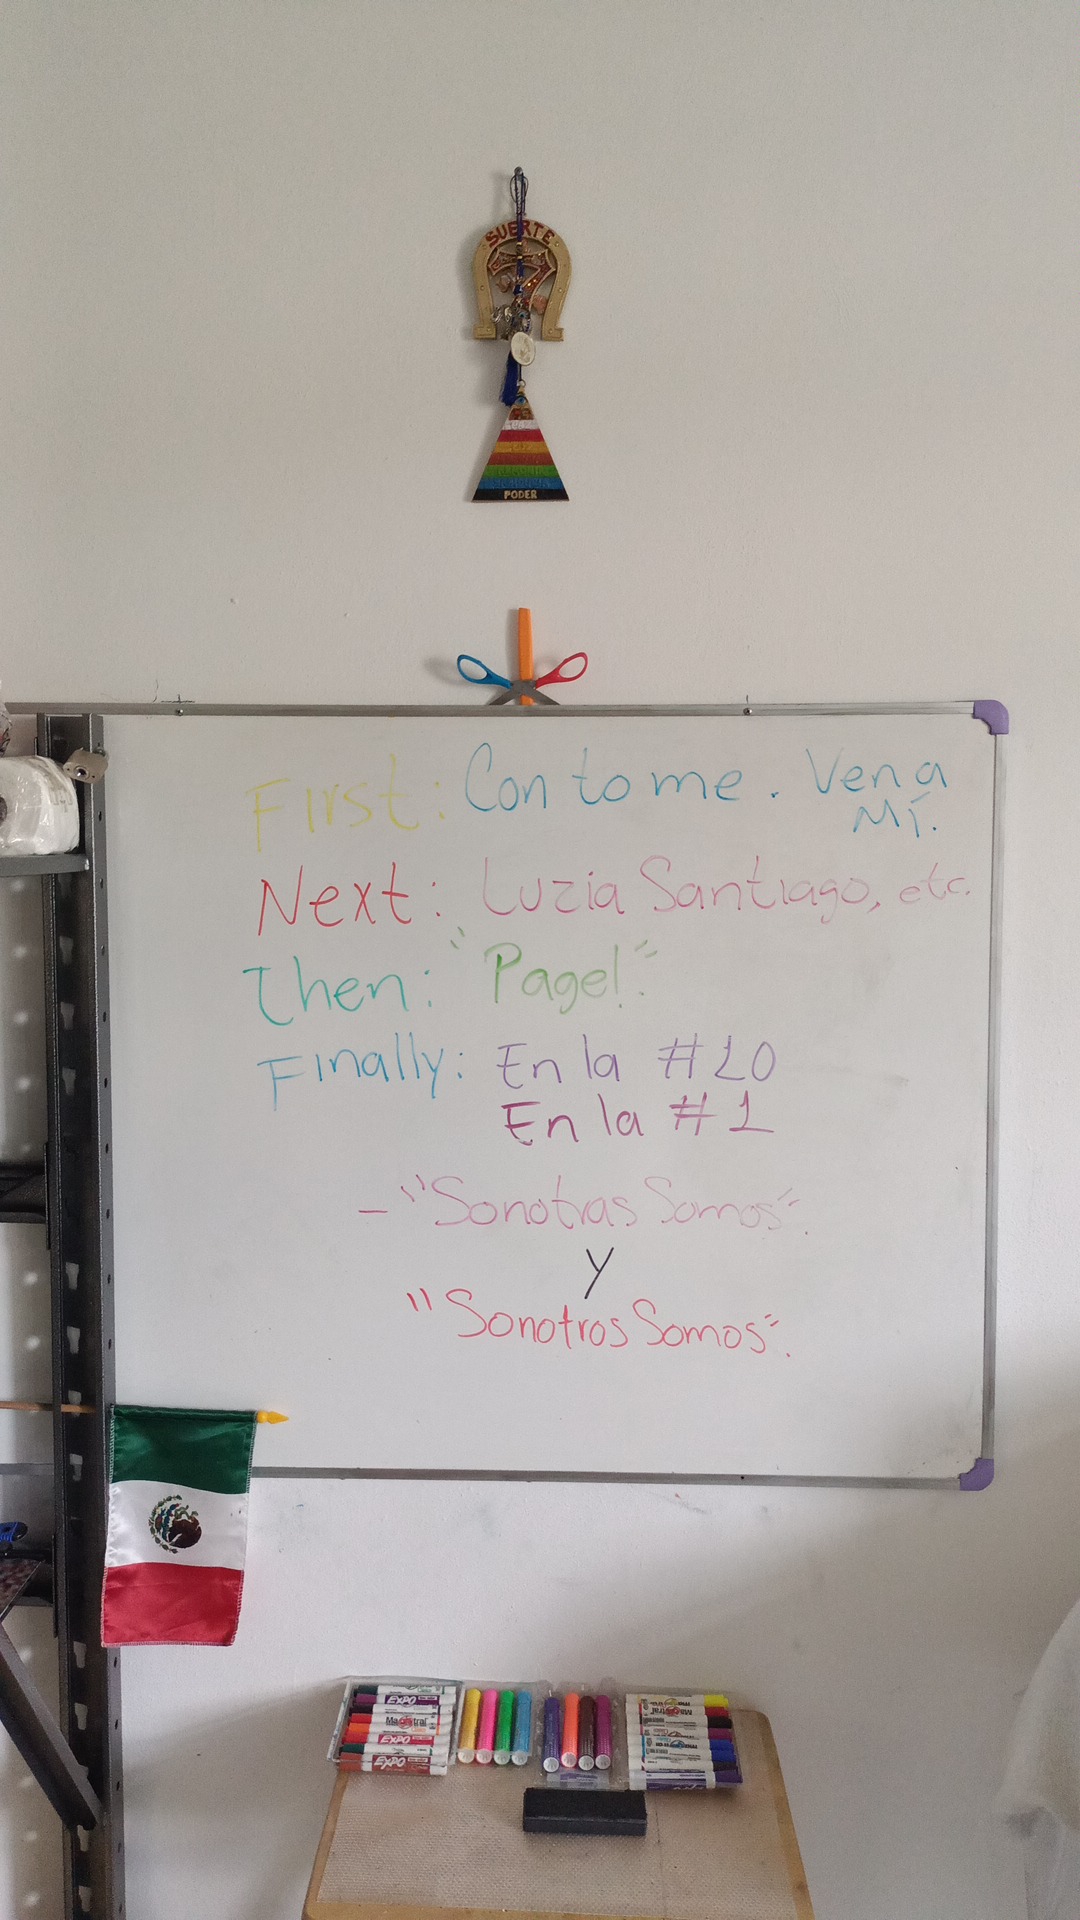 SUERTE
PODER
First: Con to me. Ven a
Mí.
Next: Luzia Santiago, etc.
Then: "Page!".
Finally: En la #10
En la #1
- "Sonotras Somos".
y
"Sonotros Somos".
EXPO
Magistral
EXPO
EXPO
Magistral